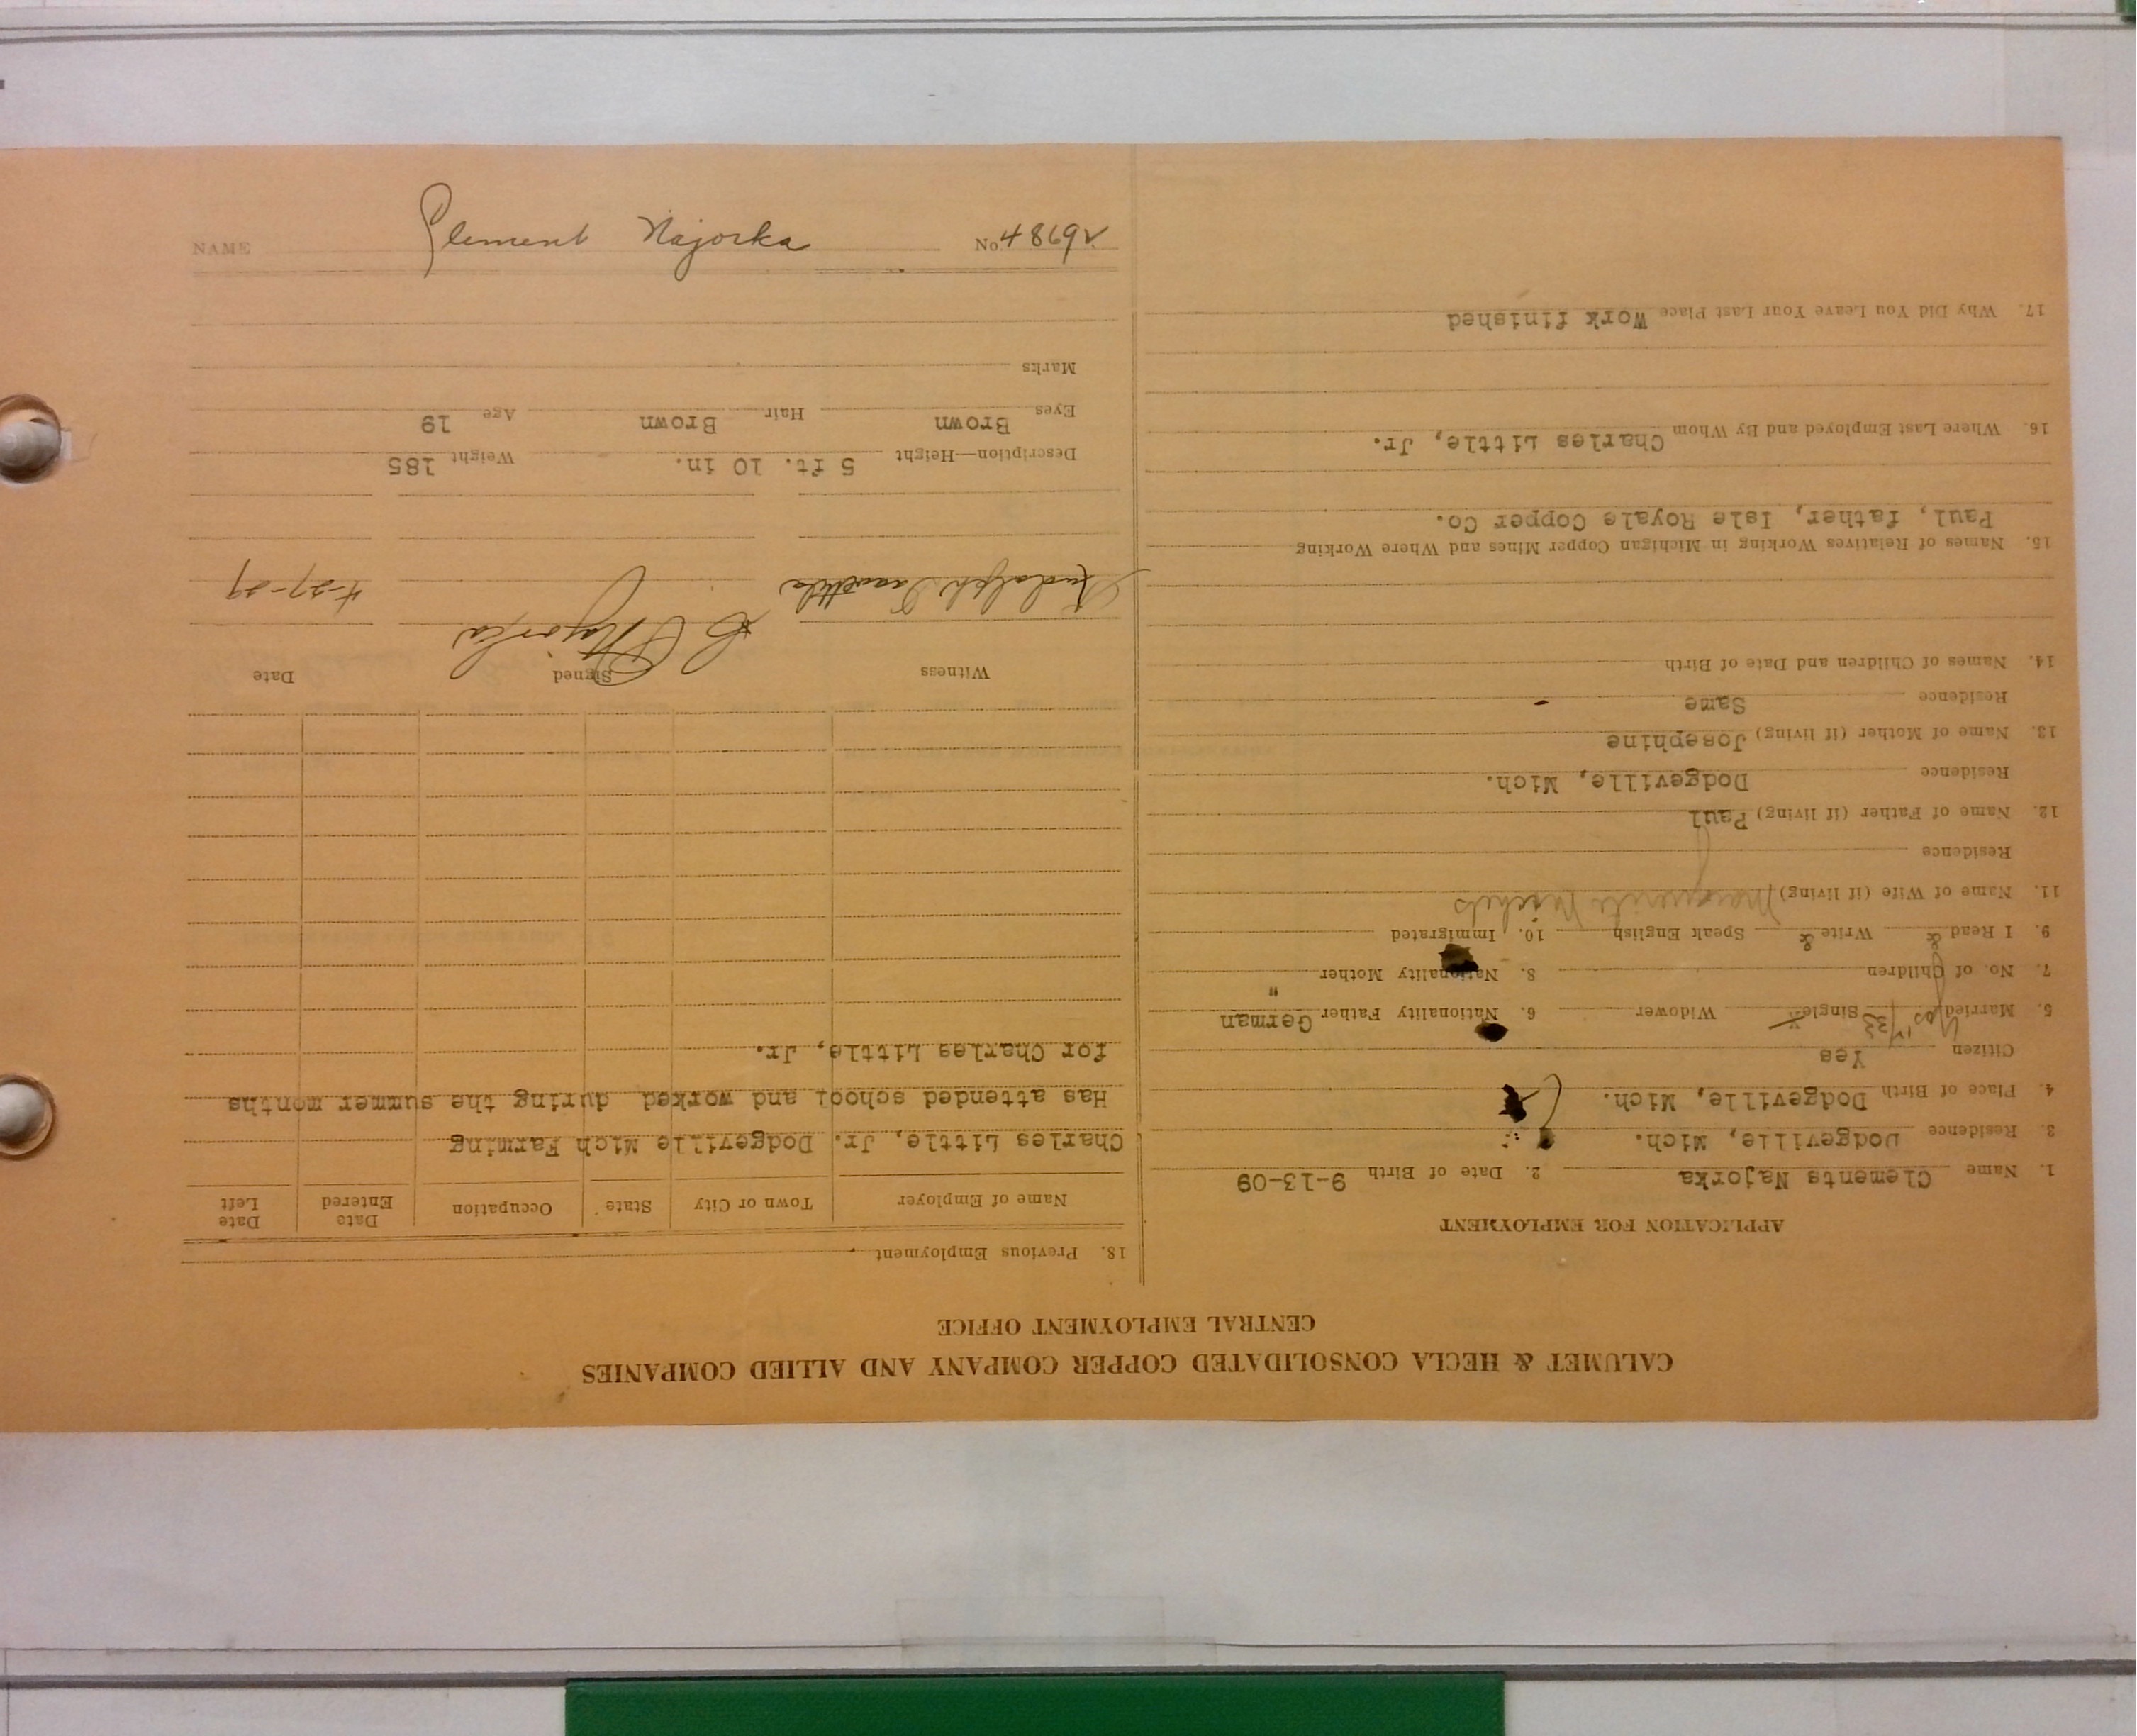 CALUMET & HECLA CONSOLIDATED COPPER COMPANY AND ALLIED COMPANIES
CENTRAL EMPLOYMENT OFFICE
APPLICATION FOR EMPLOYMENT
1. Name Clements Najorka 2. Date of Birth 9-13-09
3. Residence Dodgeville, Mich.
4. Place of Birth Dodgeville, Mich.
Citizen Yes
5. Married yes Single x Widower 6. Nationality Father German
7. No. of Children 8. Nationality Mother "
9. I Read & Write & Speak English 10. Immigrated
11. Name of Wife (if living) Marguerite Michels
Residence
12. Name of Father (if living) Paul
Residence Dodgeville, Mich.
13. Name of Mother (if living) Josephine
Residence Same
14. Names of Children and Date of Birth
15. Names of Relatives Working in Michigan Copper Mines and Where Working
Paul, father, Isle Royale Copper Co.
16. Where Last Employed and By Whom Charles Little, Jr.
17. Why Did You Leave Your Last Place Work finished
18. Previous Employment
Name of Employer Town or City State Occupation Date Entered Date Left
Charles Little, Jr. Dodgeville Mich Farming
Has attended school and worked during the summer months
for Charles Little, Jr.
Witness Signed Date
Rudolph C Najorka 4-27-29
Description—Height 5 ft. 10 in. Weight 185
Eyes Brown Hair Brown Age 19
Marks
NAME Clement Najorka No. 48692